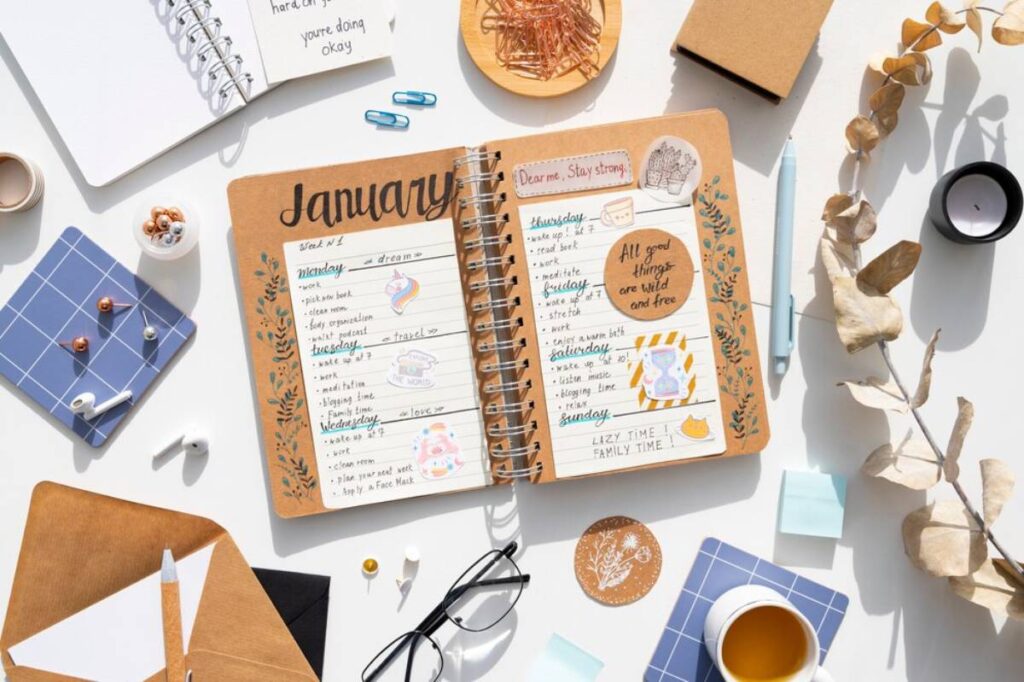 hard on
you're doing
okay
January
Week N1
Monday
« dream »
• work
• pick new book
• clean room
• body organization
• walk+ podcast
Tuesday
« travel »
• wake up at 7
• work
• meditation
• blogging time
• Family time
THE WORLD
Wednesday
« love »
• wake up at 7
• work
• clean room
• plan your next week
• Apply a Face Mask
Dear me, Stay strong.
thursday
• wake up! at 7
• read book
• work
• meditate
friday
• wake up at 7
• stretch
• work
• enjoy a warm bath
saturday
• wake up at 10!
• listen music
• blogging time
• relax
sunday
LAZY TIME !
FAMILY TIME !
All good
things
are wild
and free